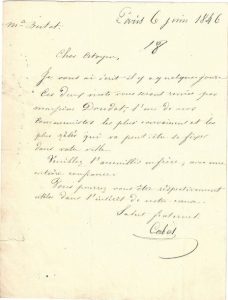 Paris 6 juin 1846
Mr.
18
Cher Citoyen,
Je vous ai écrit il y a quelques jours.
Ces deux mots vous seront remis par
monsieur Doudet, l'un de nos
communistes les plus convaincus et les
plus zélés qui va peut-être se fixer
dans votre ville.
Veuillez l'accueillir en frère, avec une
entière confiance.
Vous pourrez vous être réciproquement
utiles dans l'intérêt de notre cause.
Salut fraternel
Cabet